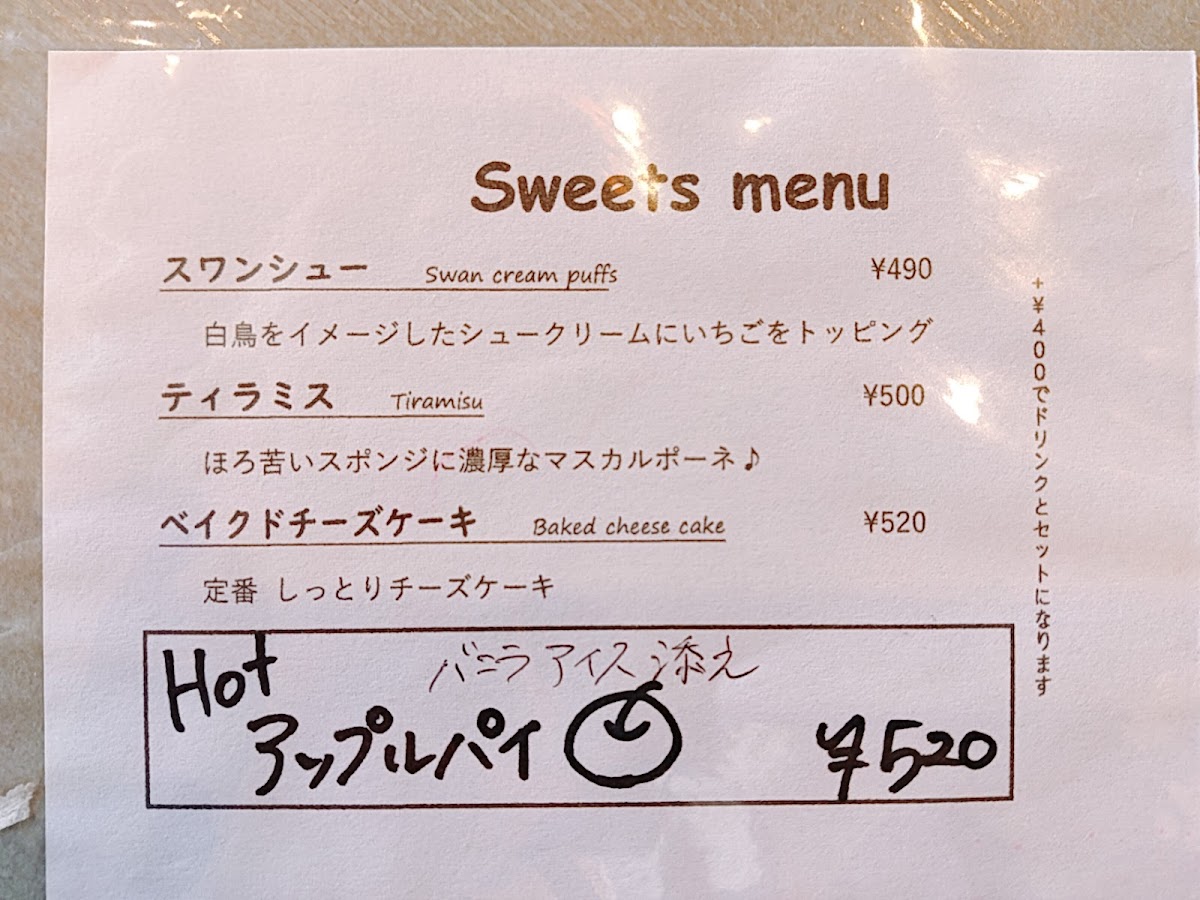 Sweets menu
スワンシュー Swan cream puffs ¥490
白鳥をイメージしたシュークリームにいちごをトッピング
ティラミス Tiramisu ¥500
ほろ苦いスポンジに濃厚なマスカルポーネ♪
ベイクドチーズケーキ Baked cheese cake ¥520
定番 しっとりチーズケーキ
Hot バニラアイス添え
アップルパイ ¥520
+¥400でドリンクとセットになります